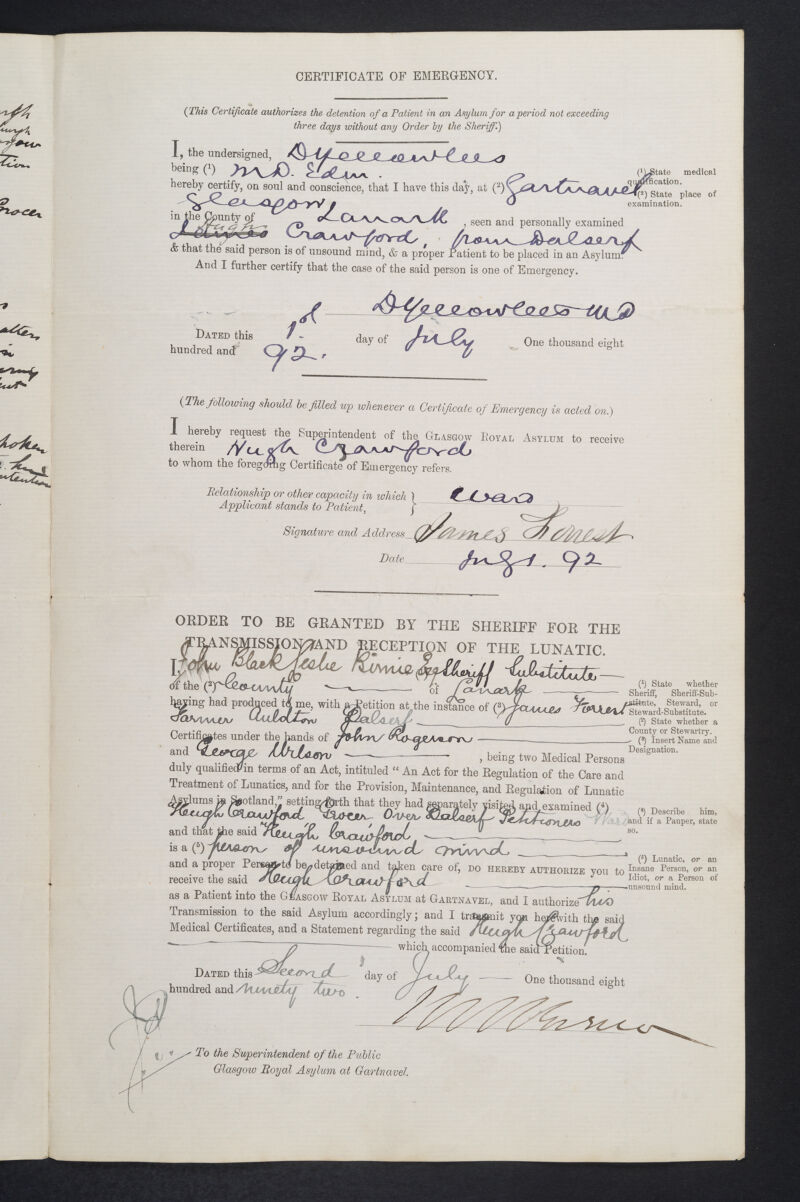 CERTIFICATE OF EMERGENCY.
(This Certificate authorizes the detention of a Patient in an Asylum for a period not exceeding
three days without any Order by the Sheriff.)
I, the undersigned, D Yellowlees
being (1) M.D. Edin.
hereby certify, on soul and conscience, that I have this day, at (2) Gartnavel
Glasgow
in the County of Lanark, seen and personally examined
James Hugh Crawford, from Dalserf
& that the said person is of unsound mind, & a proper Patient to be placed in an Asylum.
And I further certify that the case of the said person is one of Emergency.
(1) State medical
qualification.
(2) State place of
examination.
D Yellowlees MD
DATED this 1st day of July One thousand eight
hundred and 92.
(The following should be filled up whenever a Certificate of Emergency is acted on.)
I hereby request the Superintendent of the GLASGOW ROYAL ASYLUM to receive
therein Hugh Crawford
to whom the foregoing Certificate of Emergency refers.
Relationship or other capacity in which
Applicant stands to Patient, } Ward
Signature and Address James Forrest
Date July 1. 92
ORDER TO BE GRANTED BY THE SHERIFF FOR THE
TRANSMISSION AND RECEPTION OF THE LUNATIC.
I, John Black Leslie Birnie Esq Sheriff Substitute
of the (2) County of Lanark
having had produced to me, with a Petition at the instance of (3) James Forrest
Farmer Auldton Dalserf
Certificates under the hands of John Rogerson
and George Wilson, being two Medical Persons
duly qualified in terms of an Act, intituled "An Act for the Regulation of the Care and
Treatment of Lunatics, and for the Provision, Maintenance, and Regulation of Lunatic
Asylums in Scotland," setting forth that they had separately visited and examined (4)
Hugh Crawford Grocer Over Dalserf Petitioners Ward
and that the said Hugh Crawford
is a (5) person of unsound mind
and a proper Person to be detained and taken care of, DO HEREBY AUTHORIZE you to
receive the said Hugh Crawford
as a Patient into the GLASGOW ROYAL ASYLUM AT GARTNAVEL, and I authorize his
Transmission to the said Asylum accordingly; and I transmit you herewith the said
Medical Certificates, and a Statement regarding the said Hugh Crawford
which accompanied the said Petition.
(1) State whether
Sheriff, Sheriff-Sub-
stitute, Steward, or
Steward-Substitute.
(2) State whether a
County or Stewartry.
(3) Insert Name and
Designation.
(4) Describe him,
and if a Pauper, state
so.
(5) Lunatic, or an
Insane Person, or an
Idiot, or a Person of
unsound mind.
DATED this Second day of July One thousand eight
hundred and ninety two.
To the Superintendent of the Public
Glasgow Royal Asylum at Gartnavel.